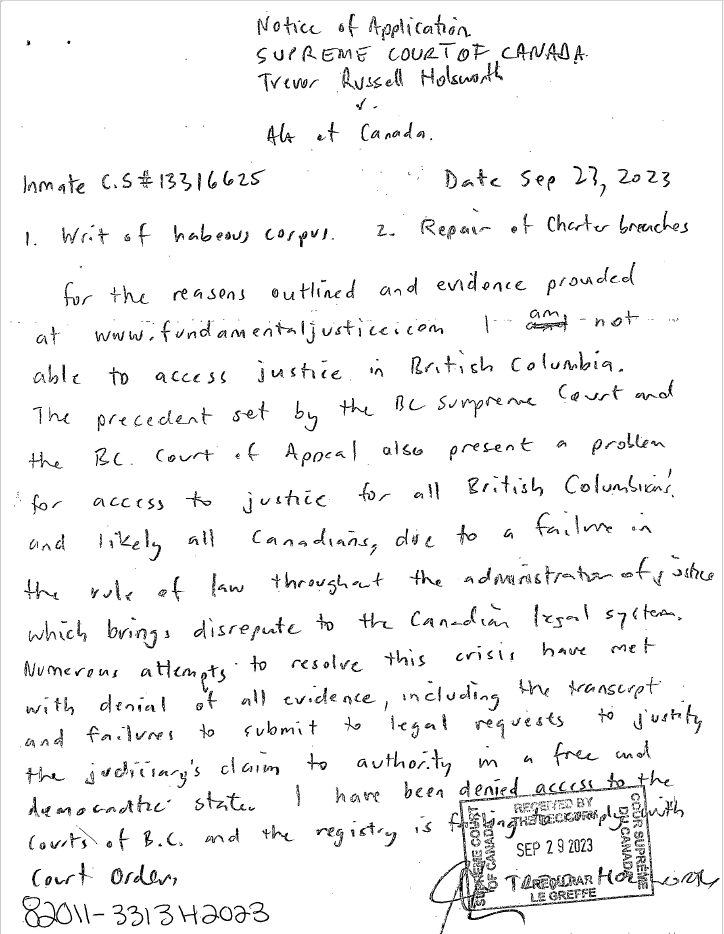 Notice of Application
SUPREME COURT OF CANADA
Trevor Russell Holsworth
v.
AG of Canada.
Inmate C.S#13316625 Date Sep 23, 2023
1. Writ of habeous corpus. 2. Repair of Charter breaches
for the reasons outlined and evidence provided
at www.fundamentaljustice.com I am not
able to access justice in British Columbia.
The precedent set by the BC Sumpreme Court and
the BC. Court of Appeal also present a problem
for access to justice for all British Columbians'
and likely all Canadians, due to a failure in
the rule of law throughout the administration of justice
which brings disrepute to the Canadian legal system.
Numerous attempts to resolve this crisis have met
with denial of all evidence, including the transcript
and failures to submit to legal requests to justify
the judiciary's claim to authority in a free and
democratic state. I have been denied access to the
Courts of B.C. and the registry is to comply with
Court Orders,
SUPREME COURT OF CANADA
RECEIVED BY
SEP 29 2023
REGISTRAR
LE GREFFE
COUR SUPRÊME DU CANADA
82011-3313H2023